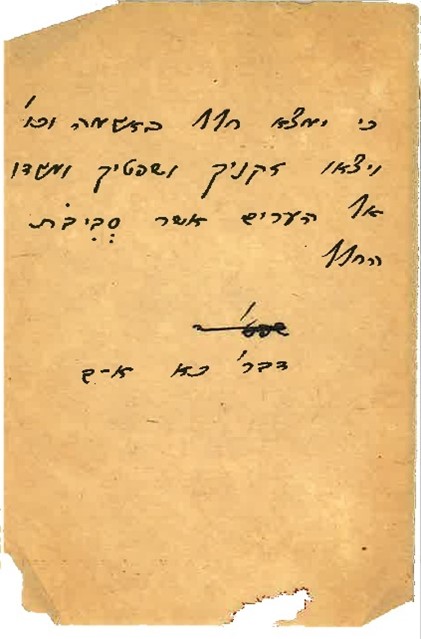 כי ימצא חלל באדמה וכו'
ויצאו זקניך ושפטיך ומדדו
אל הערים אשר סְבִיבֹת
החלל
דבר' כא א-ב